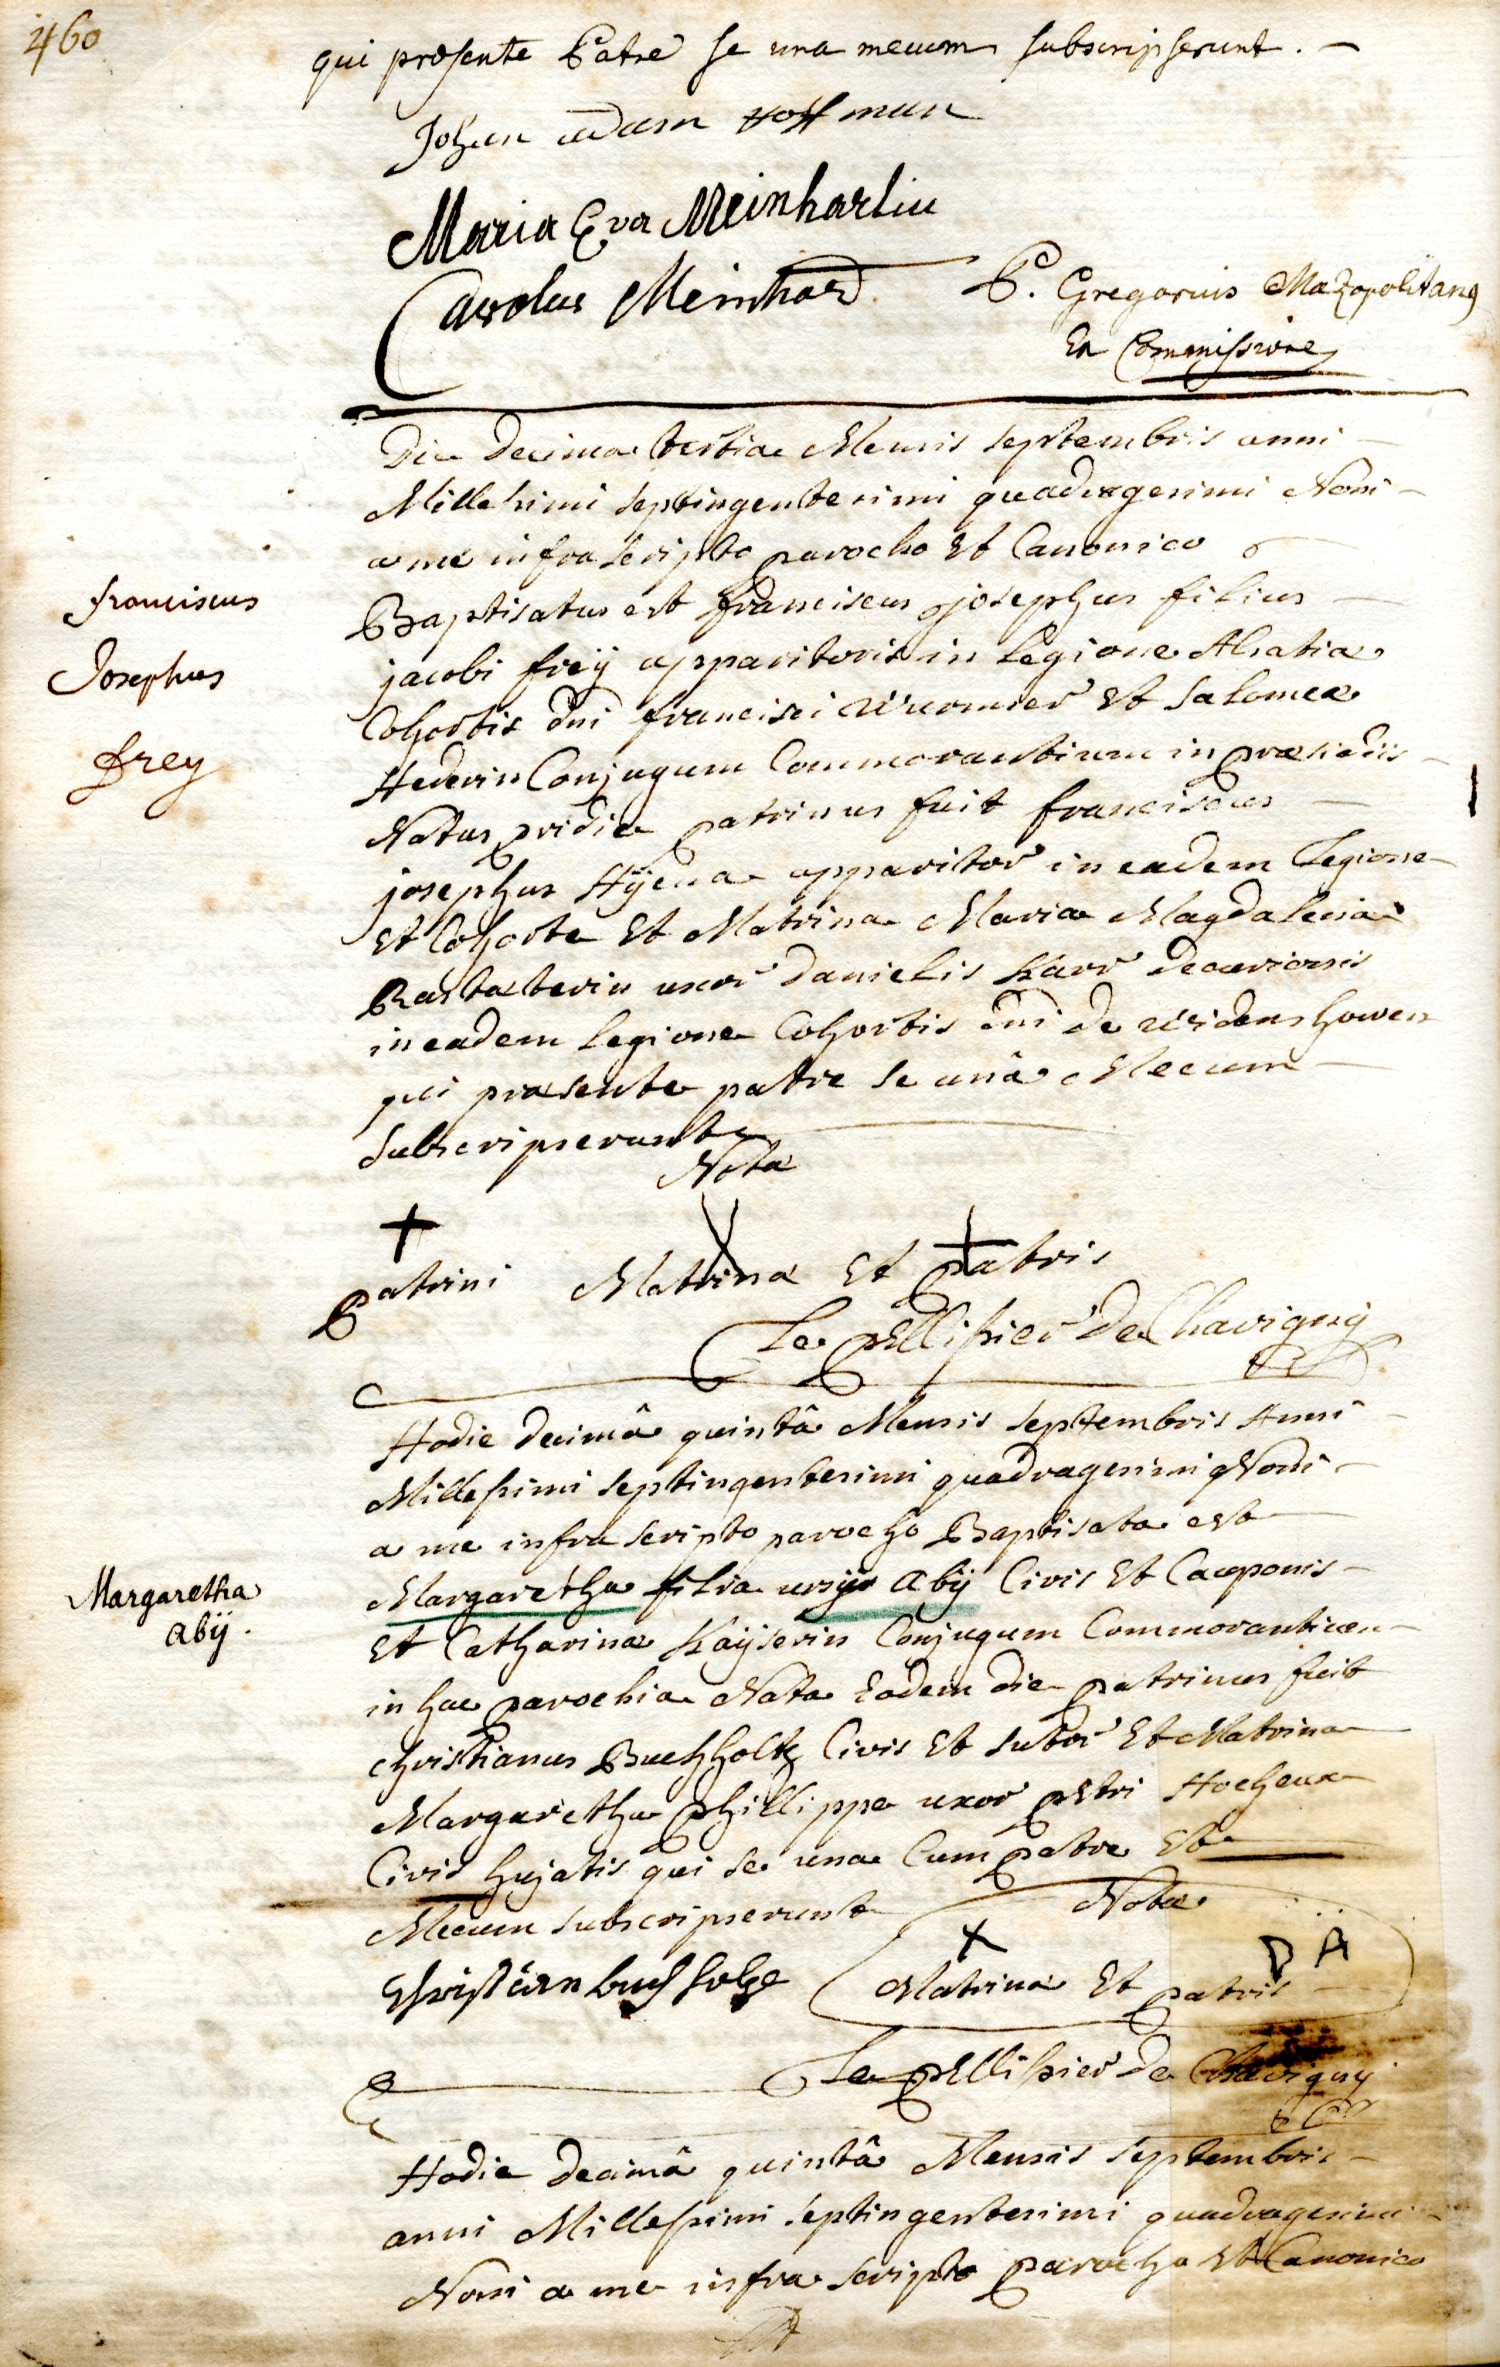 460
qui presente Patre se una mecum subscripserunt. —
Johan adam Hoffman
Maria Eva Meinhartin
Carolus Meinhard
P. Gregorius
Ex Commissione
Die decima tertia Mensis septembris anni
Millesimi septingentesimi quadragesimi Noni
a me infra scripto parocho Et Canonico
Baptisatus est franciscus josephus filius
franciscus
Josephus
frey
jacobi freÿ apparitoris in Legione Alsatiae
Cohortis dni francisci Wurmser Et Salomeae
Hederin Conjugum Commorantium in praesidiis
Natus pridie patrinus fuit franciscus
josephus apparitor in eadem Legione
Et Cohorte Et Matrina Maria Magdalena
uxor danielis Karr decurionis
in eadem Legione Cohortis dni de
qui praesente patre se unâ Mecum
Subscripserunt
Nota
Patrini Matrinae Et patris
Le pellissier de Chavigny
Hodie decimâ quintâ Mensis septembris Anni
Millesimi septingentesimi quadragesimi Noni
a me infra scripto parocho Baptisata est
Margaretha
abÿ.
Margaretha filia ursÿ abÿ Civis Et Cauponis
Et Catharinae Kaÿserin Conjugum Commorantium
in hac parochia Nata Eadem die patrinus fuit
christianus Buchholtz Civis Et sutor Et Matrina
Margaretha phillippe uxor petri
Civis hujatis qui se una Cum patre Et
Mecum subscripserunt
Nota
Christian buchholtz
D A
Matrinae Et patris
Le pellissier de Chavigny
Hodie decimâ quintâ Mensis septembris
anni Millesimi septingentesimi quadragesimi
Noni a me infra scripto parocho Et Canonico